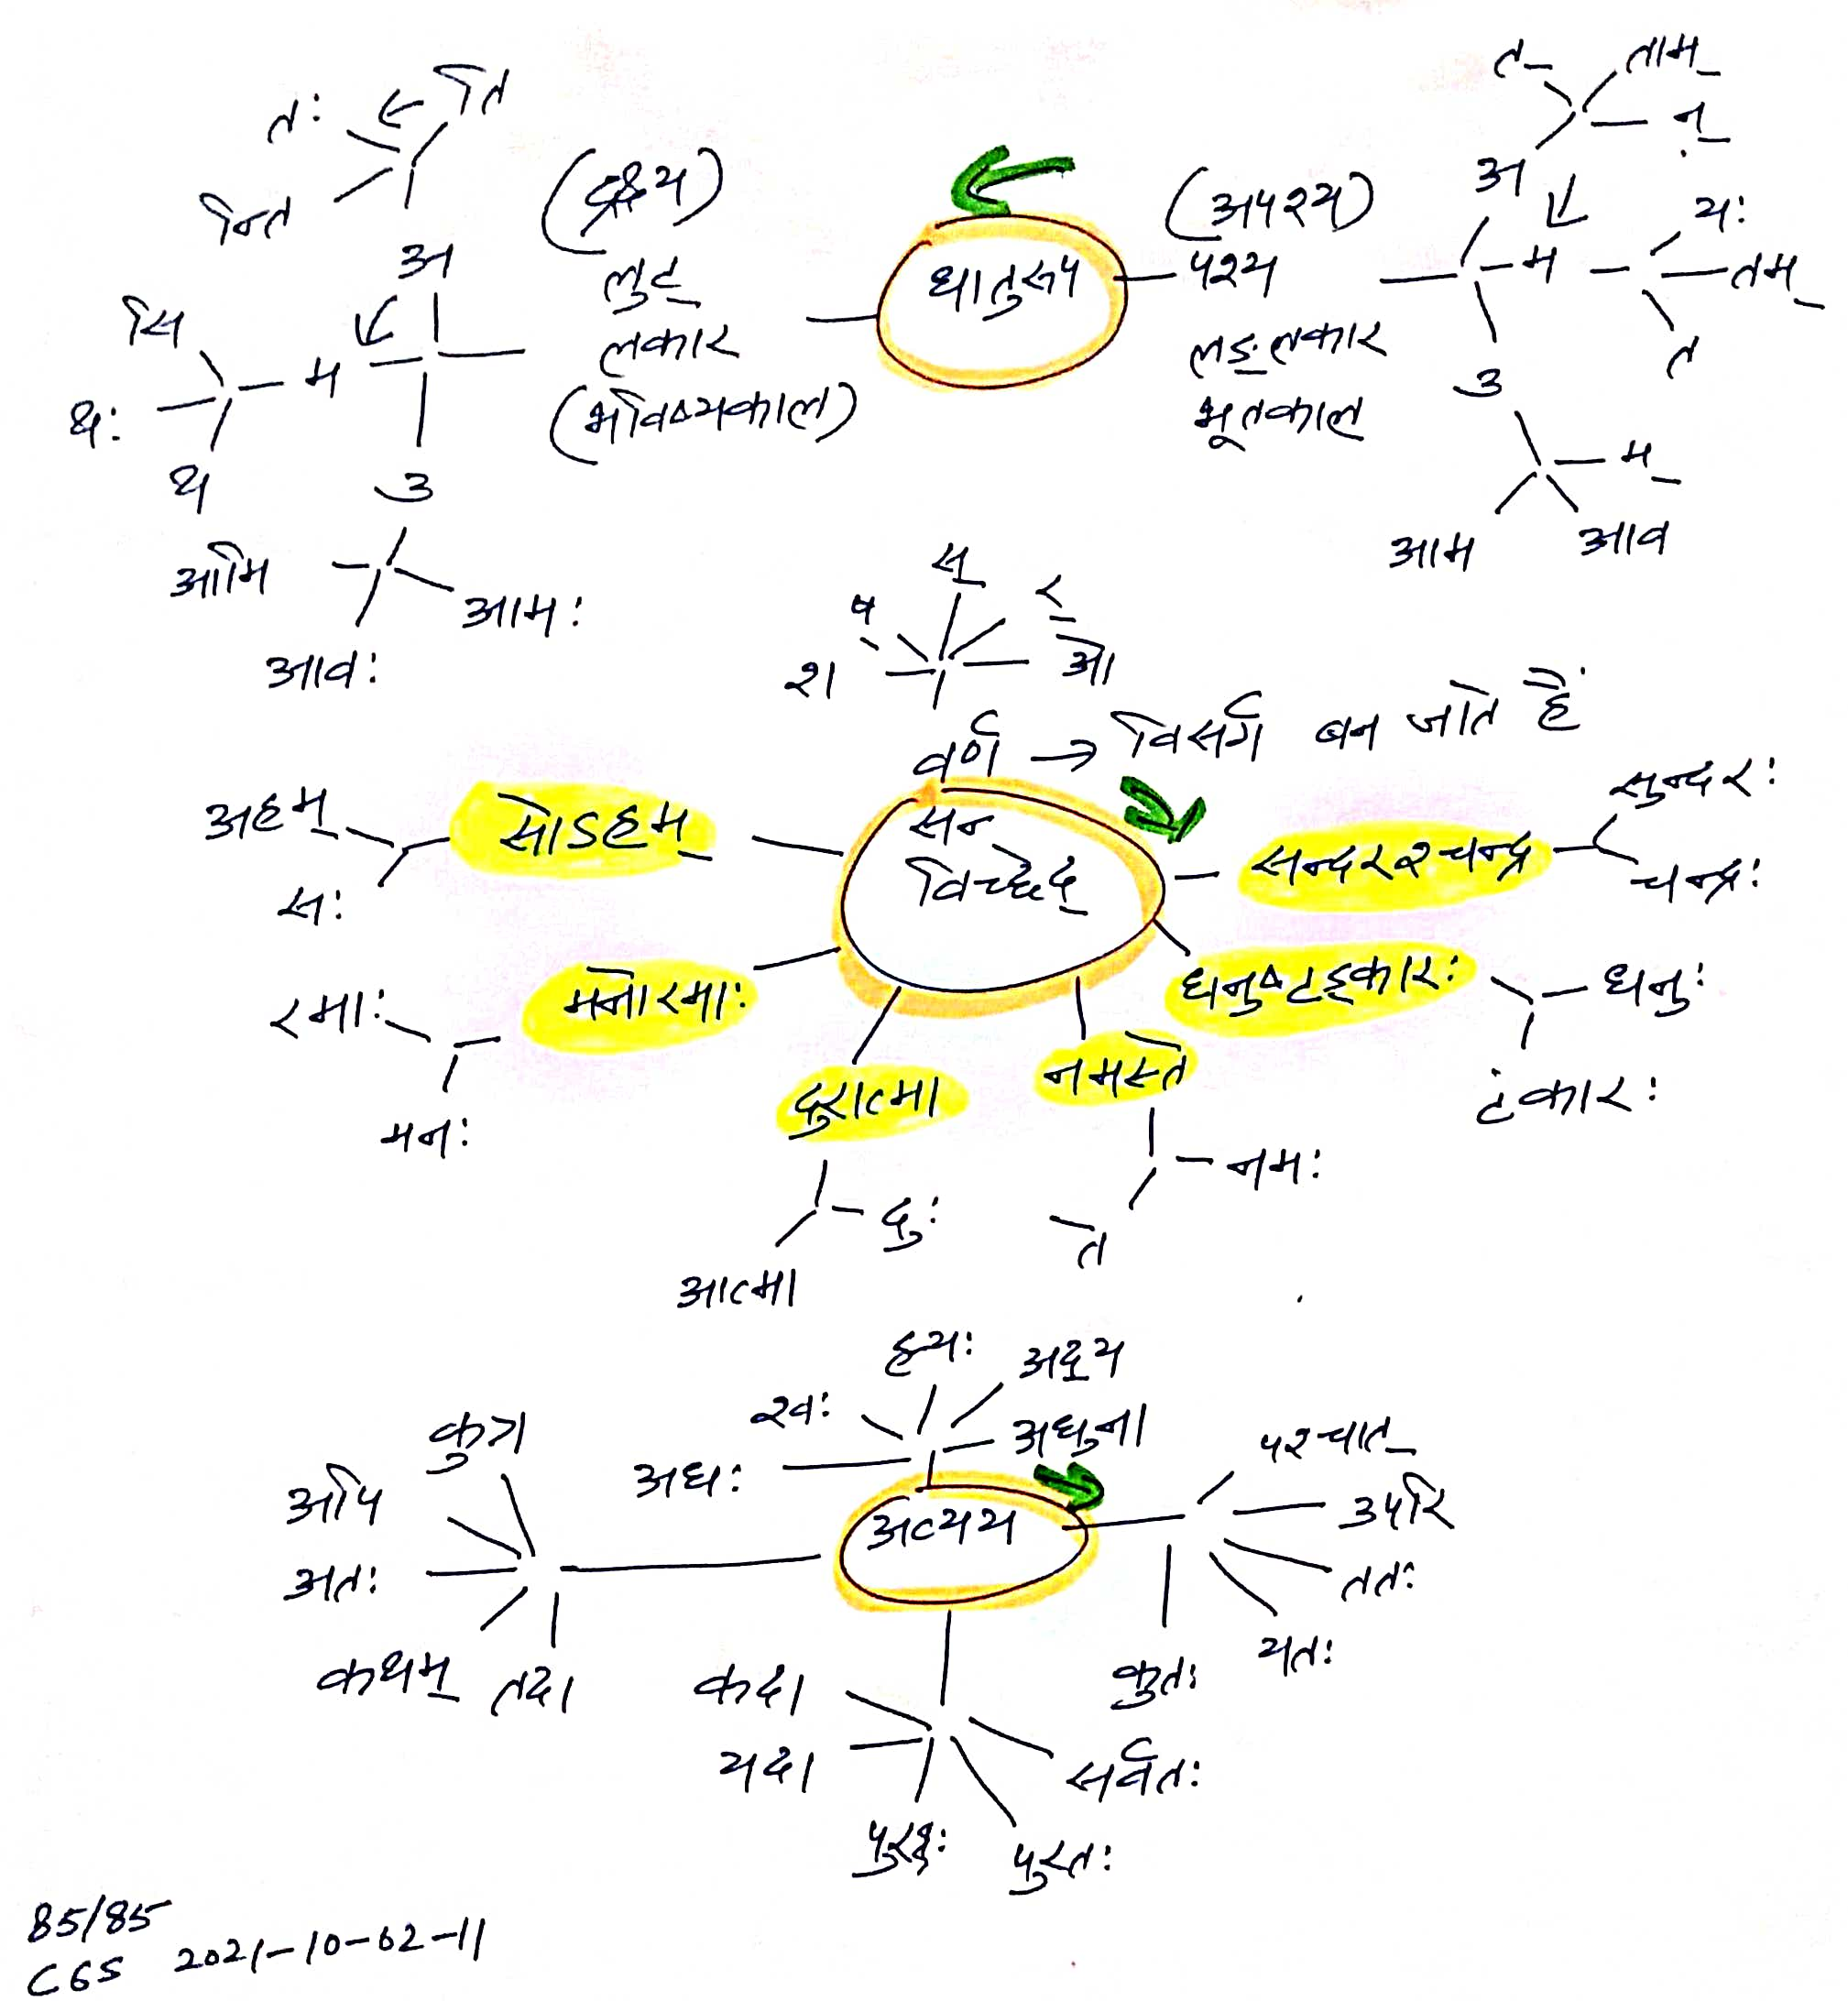 त् ताम्
ति
तः न्
न्ति अ
(अपश्य) यः
अ धातुरूप पश्य म तम्
लृट्
सि लकार लङ् लकार त
म (भविष्यकाल) भूतकाल उ
थः
थ उ म्
आमि आम आव
आमः स्
आवः ष् र्
श ओ
वर्ण → विसर्ग बन जाते हैं
सुन्दरः
अहम् सोऽहम् सन् सन्दरश्चन्द्र
विच्छेद् चन्द्रः
सः
रमाः मनोरमाः धनुष्टङ्कारः धनुः
दुरात्मा नमस्ते टंकारः
मनः
नमः
दुः ते
आत्मा
हयः अद्य
श्वः
कुत्र अधुना पश्चात्
अपि अधः उपरि
अव्यय
अतः ततः
यतः
कथम् तदा कदा कुतः
यदा सर्वतः
पुरतः
85/85
CGS 2021-10-02-11